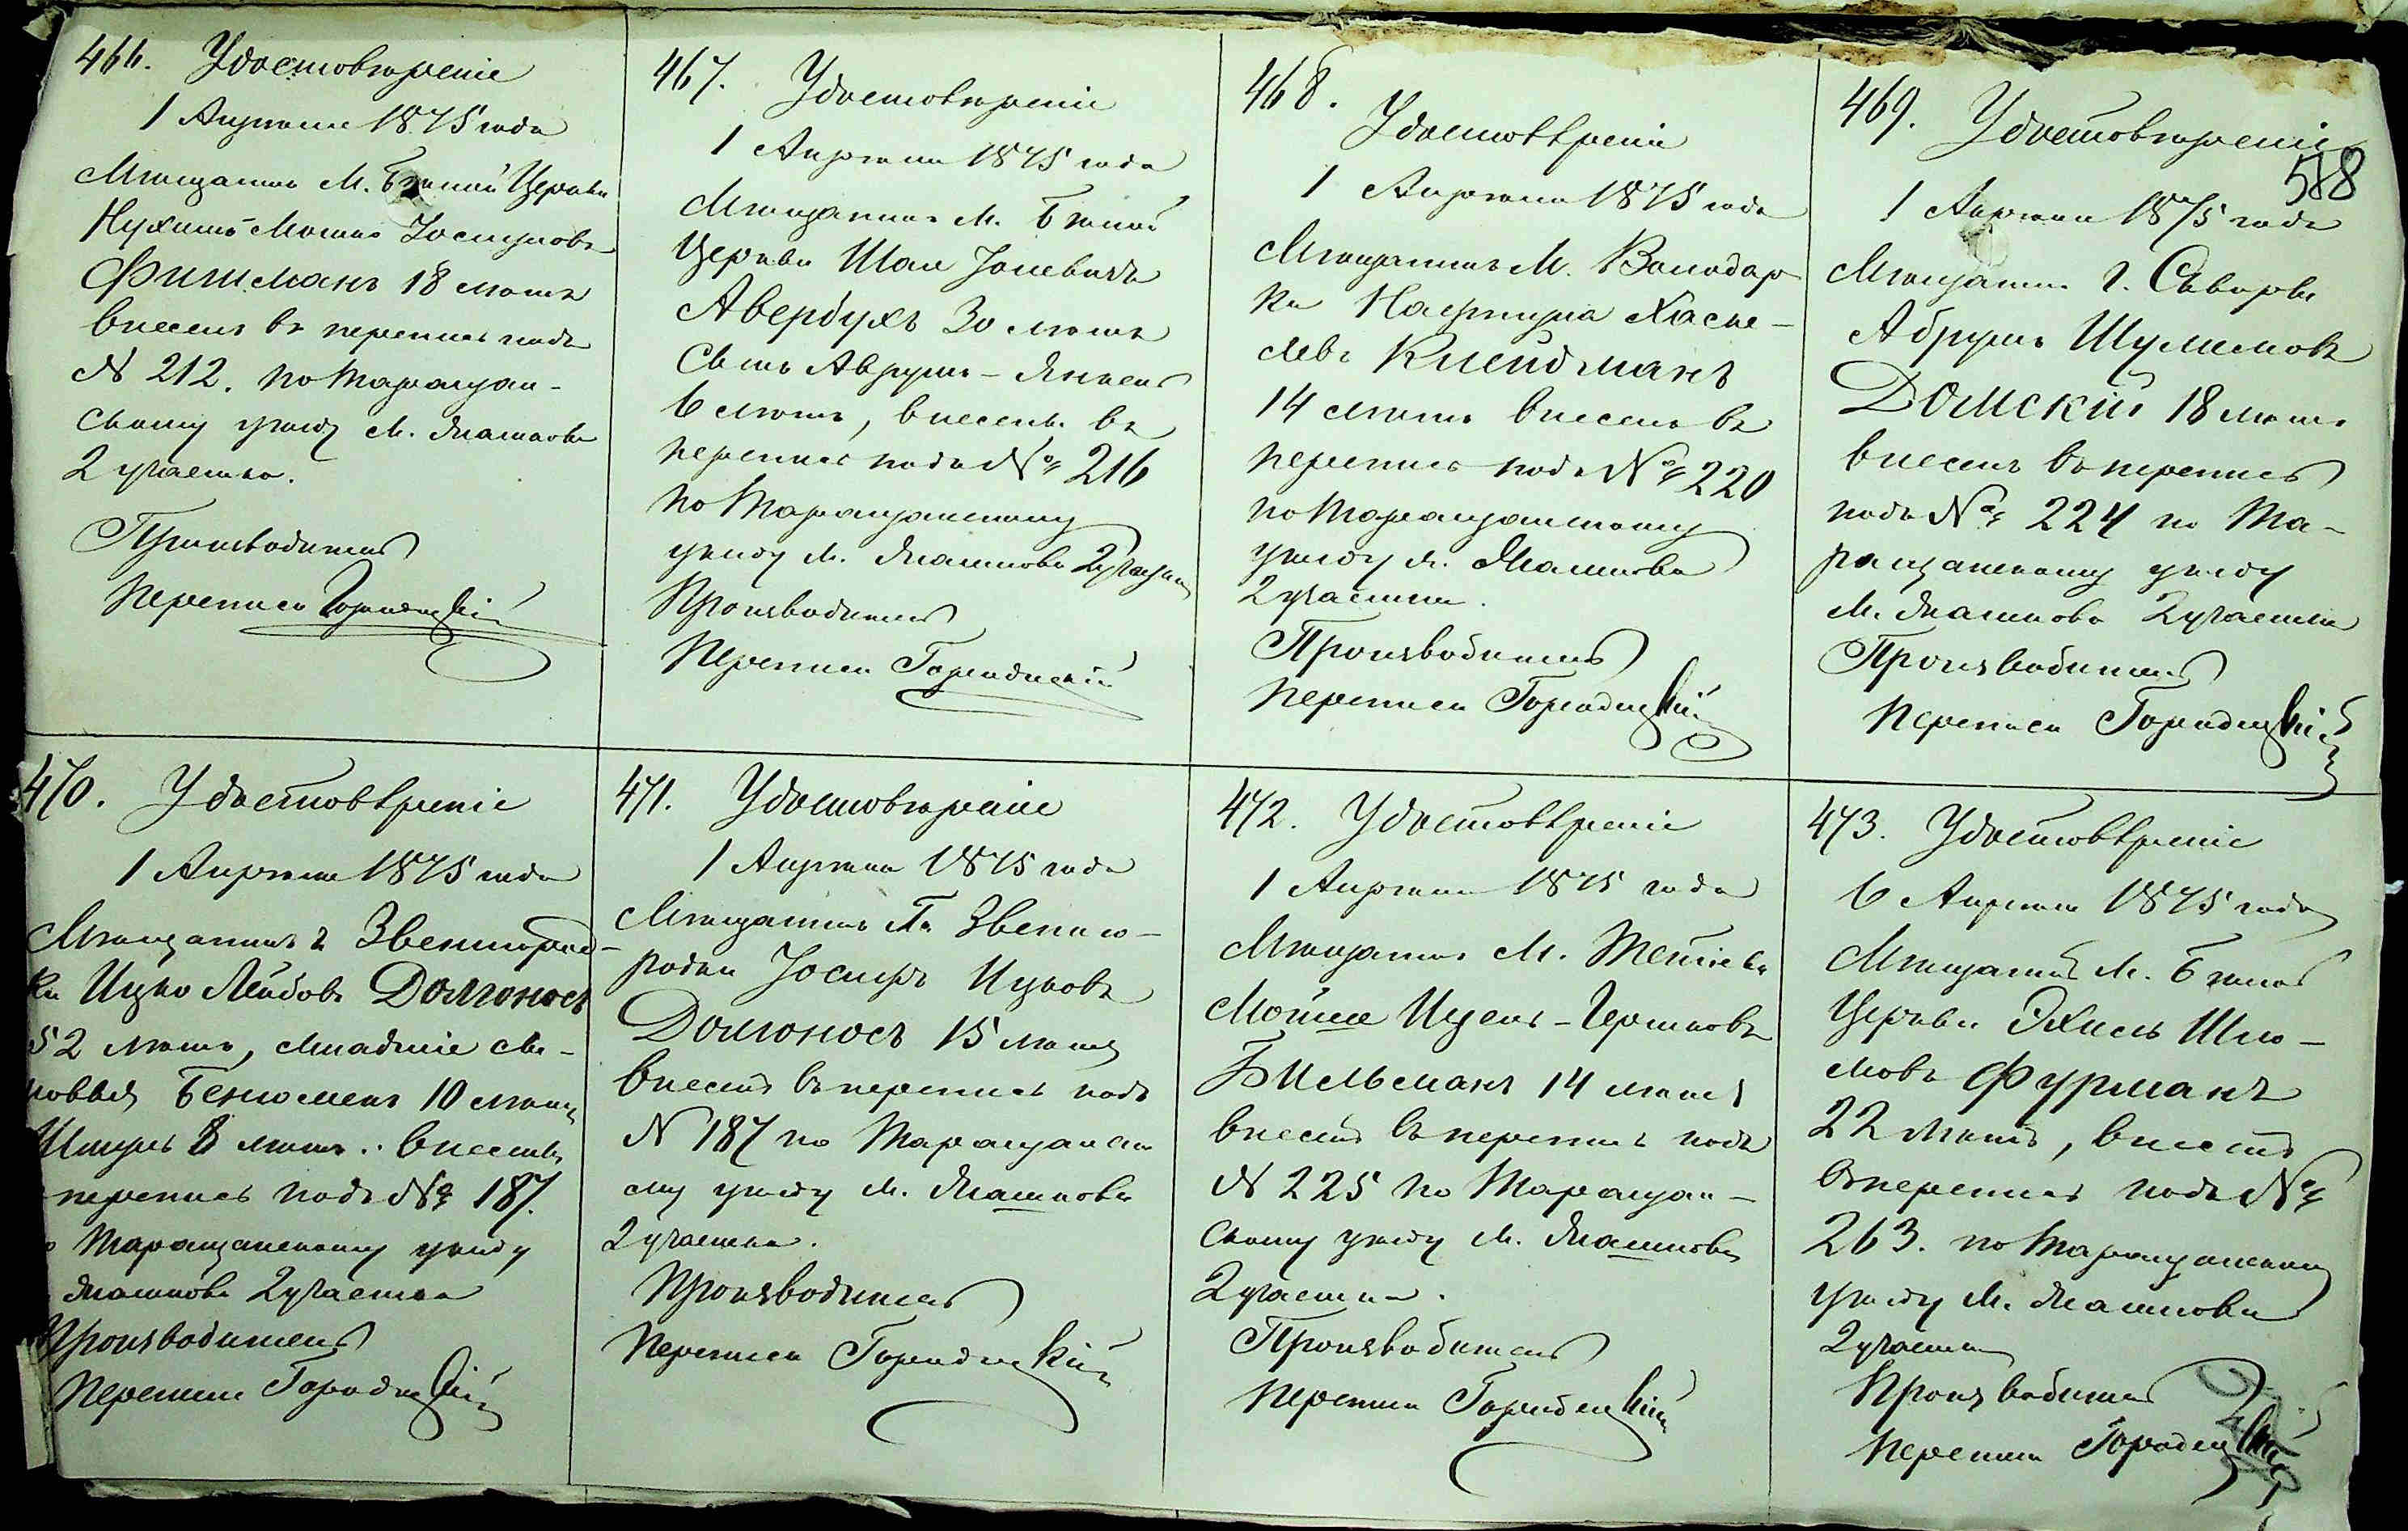 466. Удостоверение
1 Апреля 1875 года
Мещанин М. Белой Церкви
Нухим-Мошко Иосипов
Фишманъ 18 летъ
внесен в перепись подъ
N 212. по Таращан-
скому уезду М. Жашкова
2 участка.
Производитель
переписи Городецкій
467. Удостоверение
1 Апреля 1875 года
Мещанинъ М. Белой
Церкви Шая Іонев
Авербухъ 30 летъ
Сынъ Аврумъ-Янкель
6 летъ, внесены въ
перепись подъ № 216
по Таращанскому
уезду М. Жашкова 2 участк
Производитель
переписи Городецкій
468.
Удостовѣрение
1 Апреля 1875 года
Мещанинъ М. Володар-
ки Хаске-
левъ Клейдманъ
14 летъ внесенъ въ
перепись подъ № 220
по Таращанскому
уезду М. Жашкова
2 участка.
Производитель
переписи Городецкій
469. Удостоверение
588
1 Апреля 1875 года
Мещанинъ г. Сквиры
Абрумъ Шулимовъ
Домскій 18 летъ
внесенъ въ перепись
подъ № 224 по Та-
ращанскому уезду
М. Жашкова 2 участка
Производитель
переписи Городецкій
470. Удостовѣрение
1 Апреля 1875 года
Мещанинъ г. Звенигород-
ки Ицко Лейбовъ Долгоносъ
52 летъ, младшіе сы-
новья Бенюменъ 10 летъ
8 летъ. внесены
перепись подъ № 187.
Таращанскому уезду
Жашкова 2 участка
Производитель
переписи Городецкій
471. Удостоверение
1 Апреля 1875 года
Мещанинъ г. Звениго-
родки Іосифъ Ицковъ
Долгоносъ 15 летъ
внесенъ въ перепись подъ
N 187 по Таращанско
му уезду М. Жашкова
2 участка.
Производитель
переписи Городецкій
472. Удостовѣрение
1 Апреля 1875 года
Мещанинъ М. Тетіева
Мойше Ицель-Гершковъ
Бильеманъ 14 летъ
внесенъ въ перепись подъ
N 225 по Таращан-
скому уезду М. Жашкова
2 участка.
Производитель
переписи Городецкій
473. Удостовѣрение
6 Апреля 1875 года
Мещанинъ М. Белой
Церкви Эхиель Шлю-
мовъ Фурманъ
22 летъ, внесенъ
въ перепись подъ №
263. по Таращанскому
уезду М. Жашкова
2 участка
Производитель
переписи Городецкій